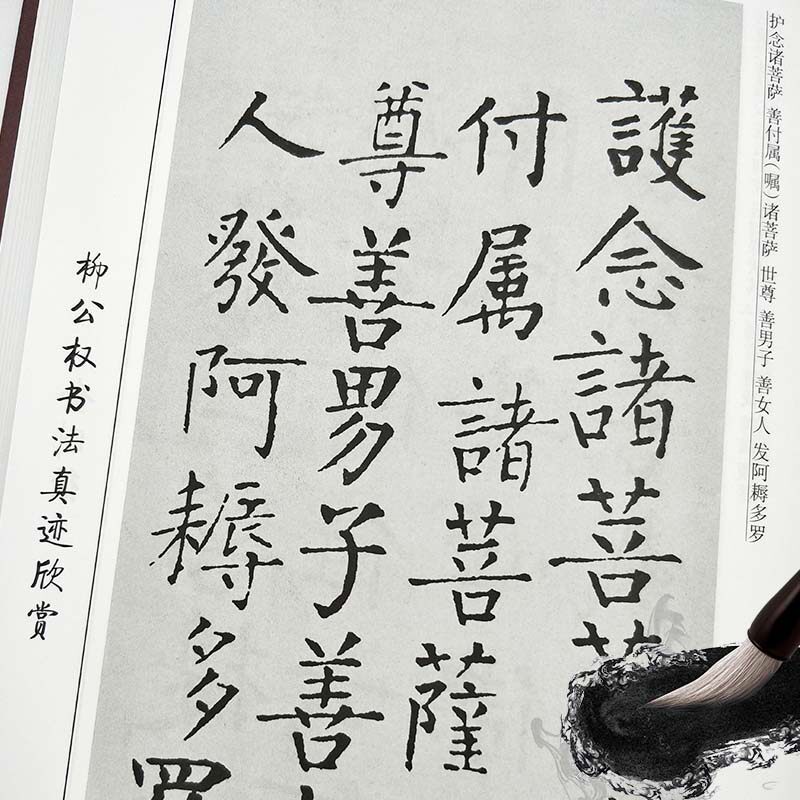 护念诸菩萨 善付属(嘱)诸菩萨 世尊 善男子 善女人 发阿耨多罗
護念諸菩
付属諸菩薩
尊善男子善
人發阿耨多
柳公权书法真迹欣赏